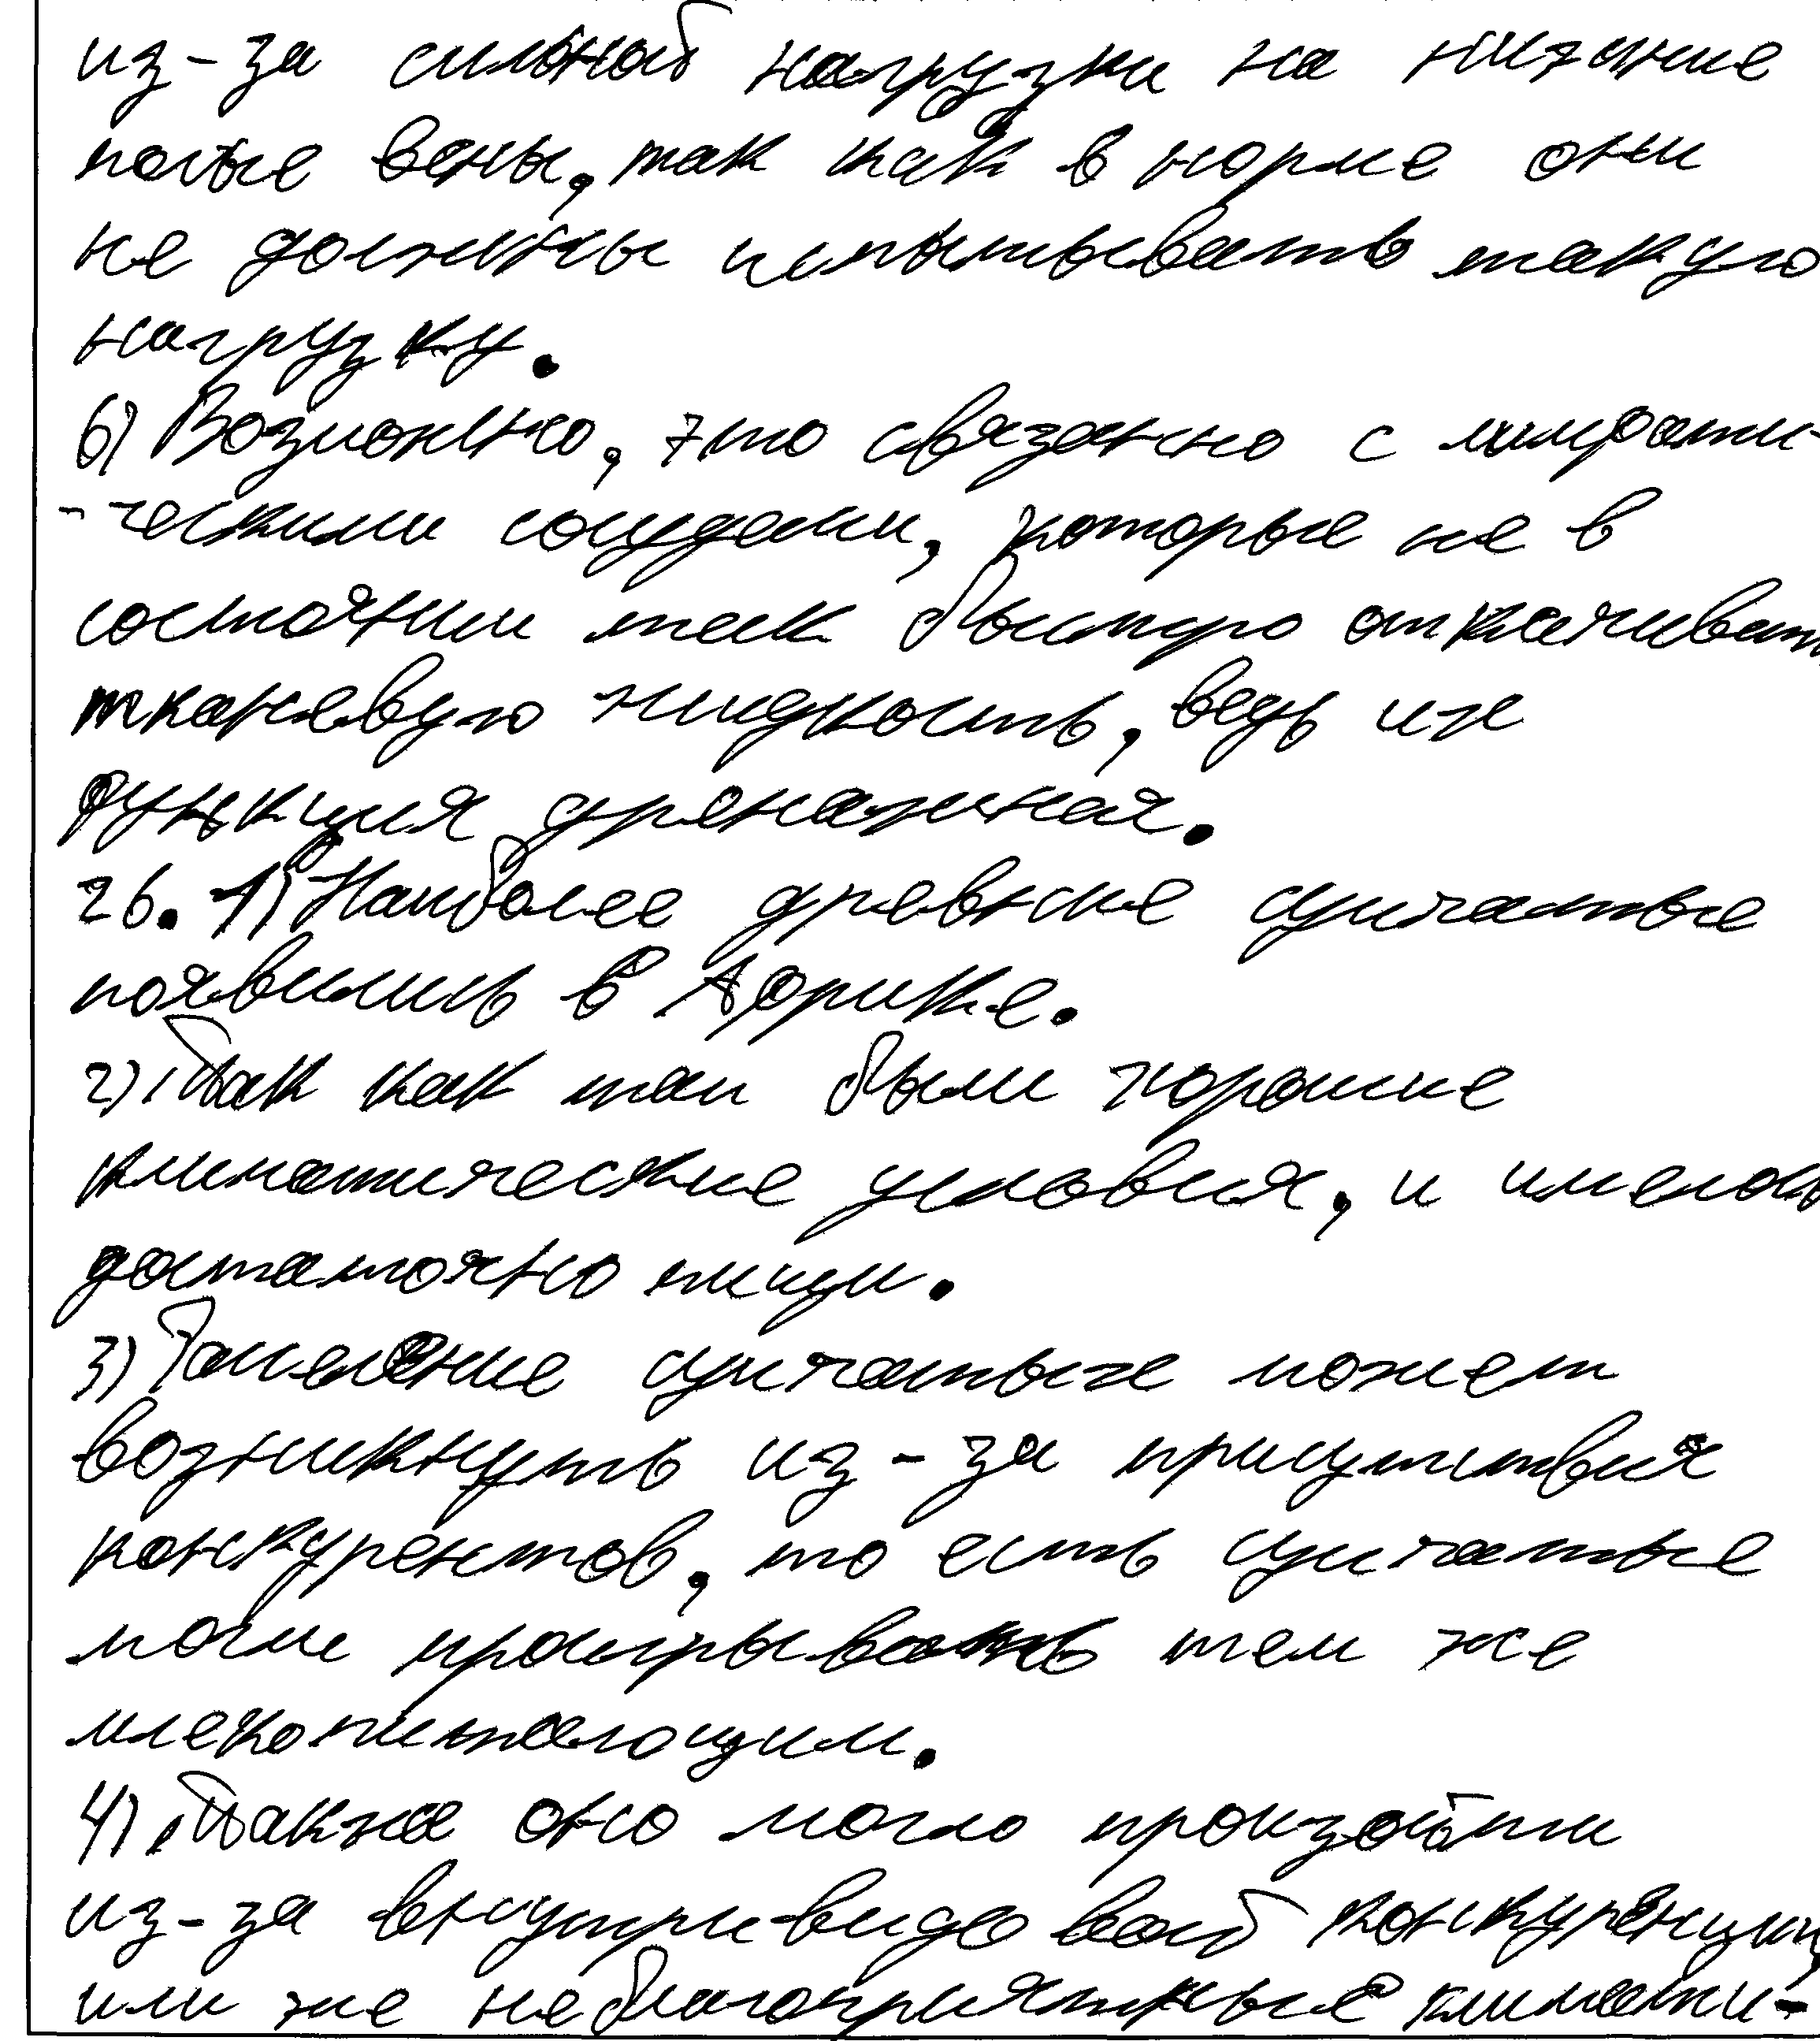 из-за сильной нагрузки на нижние
полые вены, так как в норме они
не должны испытывать такую
нагрузку.
6) Возможно, это связанно с лимфати-
-ческими сосудами, которые не в
состоянии так быстро откачивать
тканевую жидкость, ведь их
функция дренажная.
26. 1) Наиболее древние сумчатые
появились в Африке.
2) Так как там были хорошие
климатические условия, и имелось
достаточно пищи.
3) Расселение сумчатых может
возникнуть из-за присутствия
конкурентов, то есть сумчатые
могли проигрывать тем же
млекопитающим.
4) Также оно могло произойти
из-за внутривидовой конкуренции,
или же неблагоприятные климати-